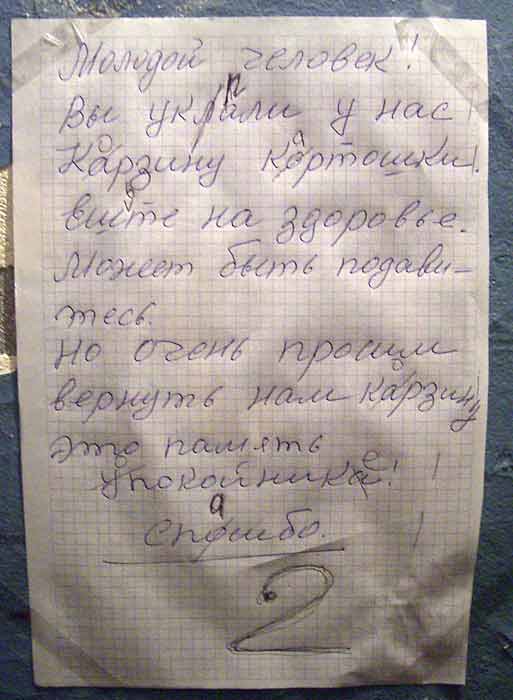 Молодой человек!
Вы украли у нас
Карзину кортошки!
ешьте на здоровье.
Может быть подави-
тесь.
но очень просим
вернуть нам карзину
это память
упокойника!
спосибо.
2